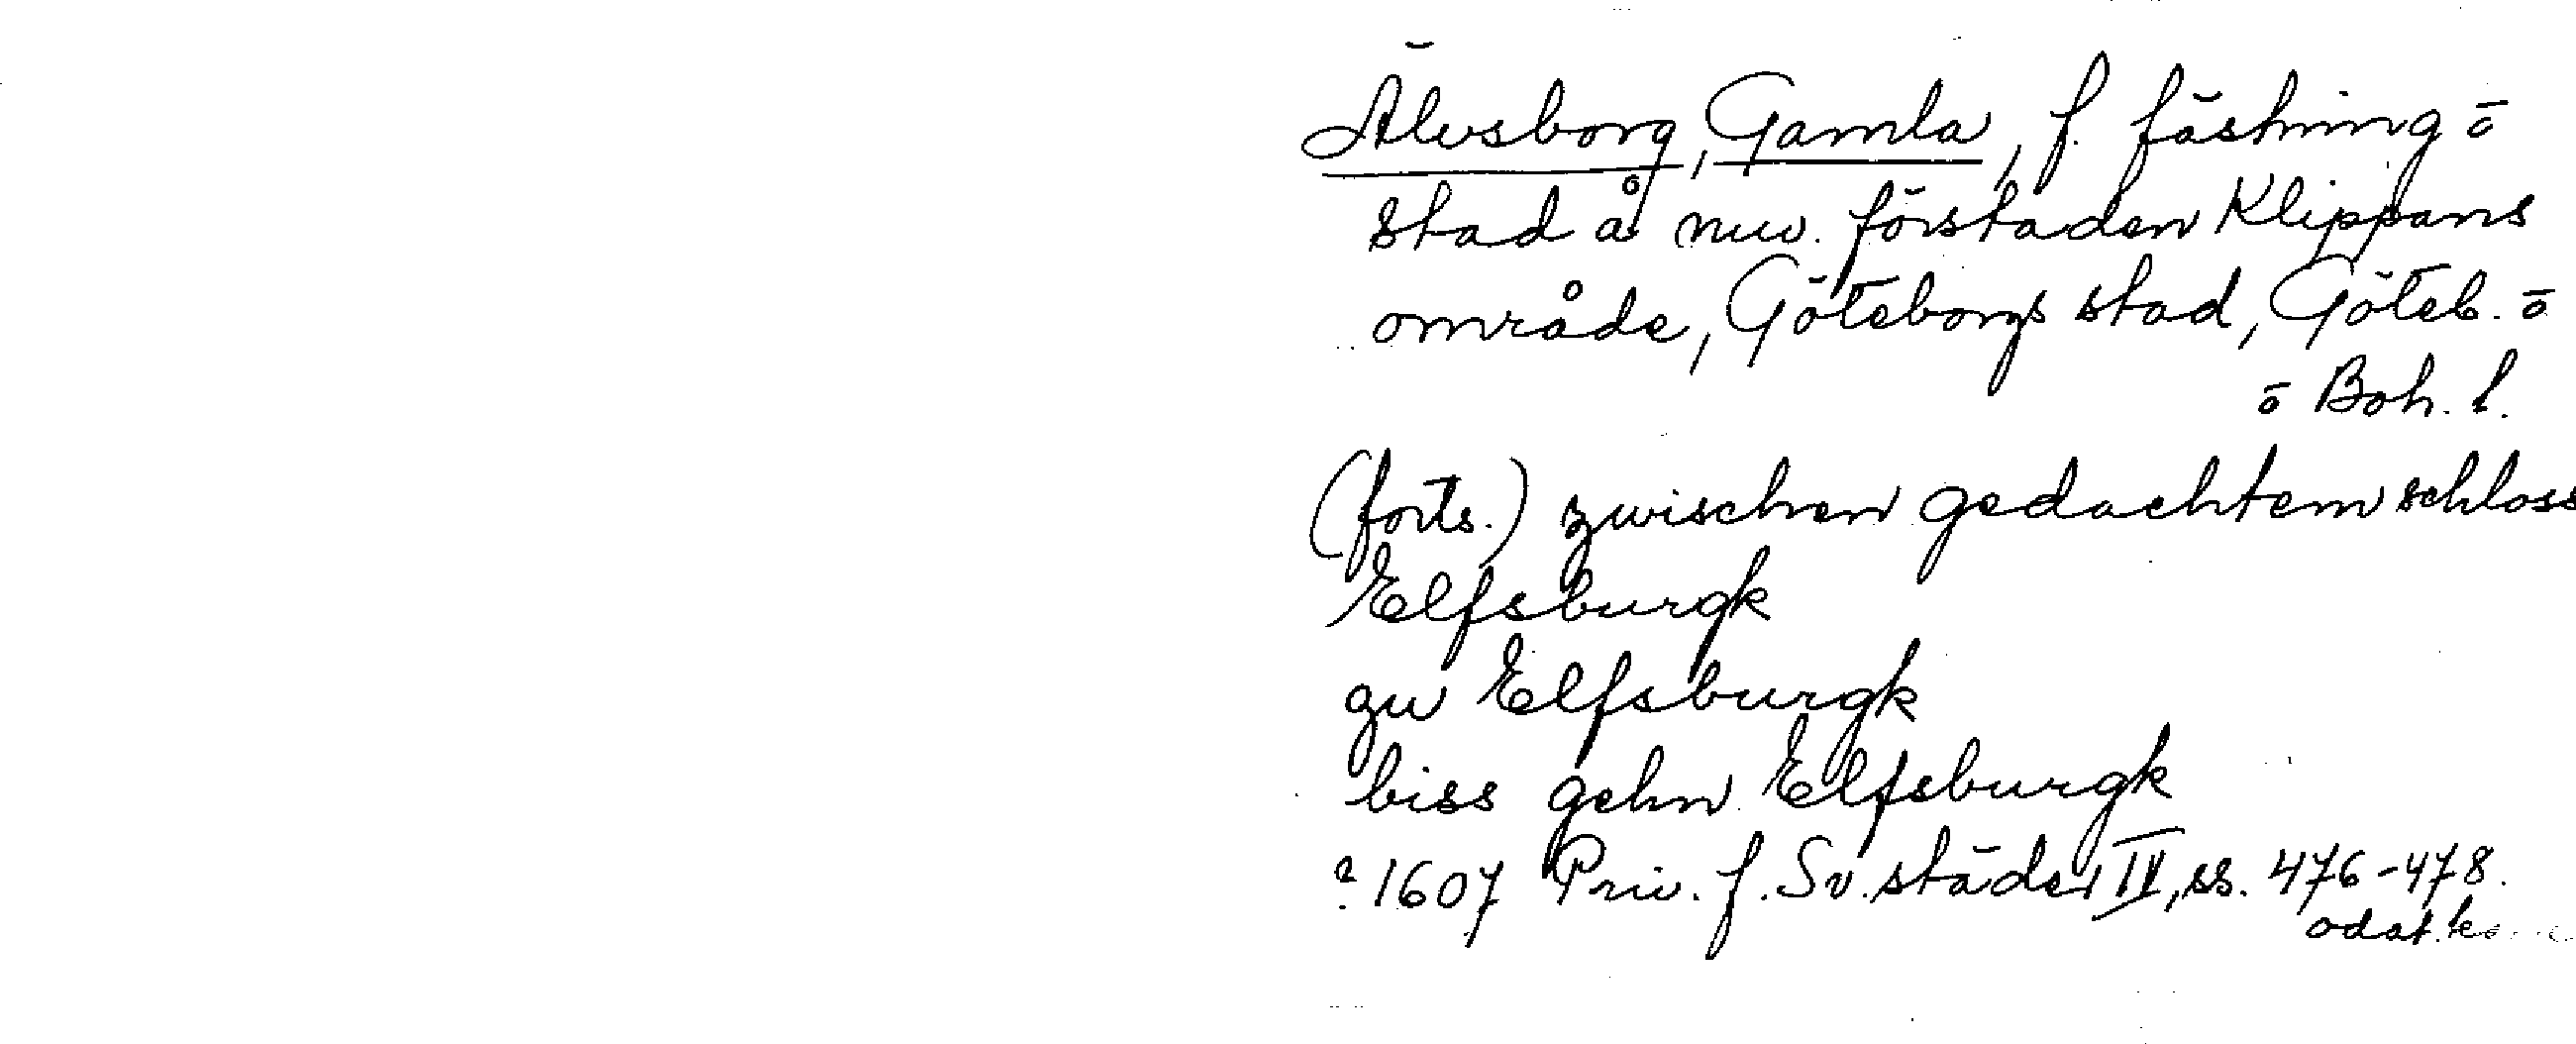 Älvsborg, Gamla, f. fästning o
stad å nuv. förstaden Klippans
område, Göteborgs stad, Göteb. o
o Boh. l.
(forts.) zwischen gedachtem schloss
Elfsburgk
zu Elfsburgk
biss gehn Elfsburgk
? 1607 Priv. f. Sv. städer IV, ss. 476-478.
odat.